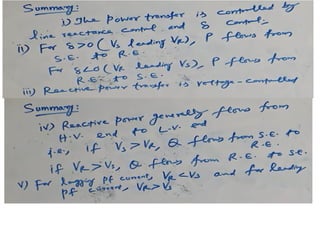 Summary:
i) The power transfer is controlled by
line reactance control and δ control.
ii) For δ>0 (Vs leading VR), P flows from
S.E. to R.E.
For δ<0 (VR leading Vs), P flows from
R.E. to S.E.
iii) Reactive power transfer is voltage-controlled
Summary:
iv) Reactive power generally flows from
H.V. end to L.V. end
i.e., if Vs > VR, Q flows from S.E. to
R.E.
if VR > Vs, Q flows from R.E. to SE.
v) For lagging pf current, VR < Vs and for leading
pf current, VR > Vs